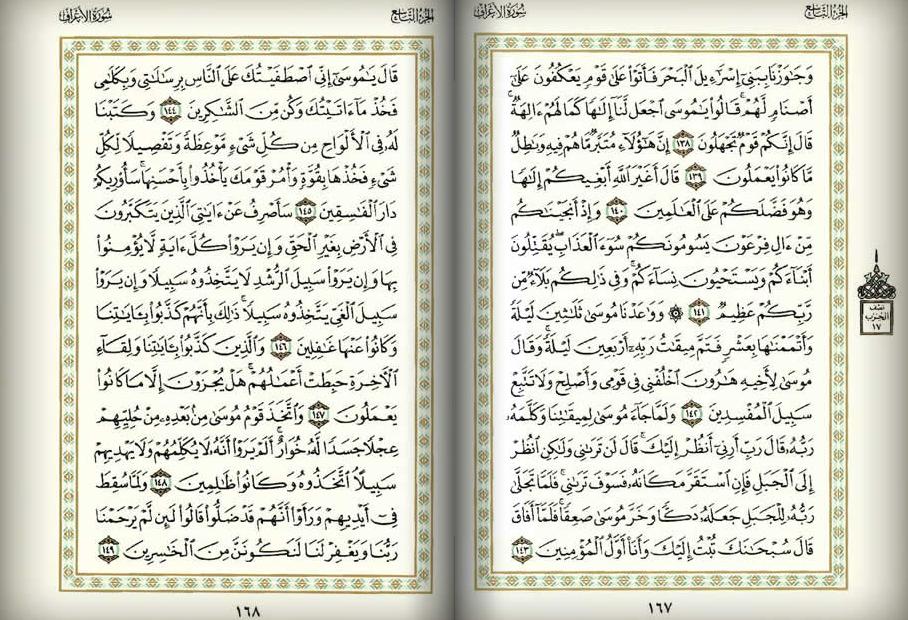 الجزء التاسع
سورة الأعراف
وَجَٰوَزۡنَا بِبَنِيٓ إِسۡرَٰٓءِيلَ ٱلۡبَحۡرَ فَأَتَوۡاْ عَلَىٰ قَوۡمٖ يَعۡكُفُونَ عَلَىٰٓ
أَصۡنَامٖ لَّهُمۡۚ قَالُواْ يَٰمُوسَى ٱجۡعَل لَّنَآ إِلَٰهٗا كَمَا لَهُمۡ ءَالِهَةٞۚ
قَالَ إِنَّكُمۡ قَوۡمٞ تَجۡهَلُونَ ١٣٨ إِنَّ هَٰٓؤُلَآءِ مُتَبَّرٞ مَّا هُمۡ فِيهِ وَبَٰطِلٞ
مَّا كَانُواْ يَعۡمَلُونَ ١٣٩ قَالَ أَغَيۡرَ ٱللَّهِ أَبۡغِيكُمۡ إِلَٰهٗا
وَهُوَ فَضَّلَكُمۡ عَلَى ٱلۡعَٰلَمِينَ ١٤٠ وَإِذۡ أَنجَيۡنَٰكُم
مِّنۡ ءَالِ فِرۡعَوۡنَ يَسُومُونَكُمۡ سُوٓءَ ٱلۡعَذَابِ يُقَتِّلُونَ
أَبۡنَآءَكُمۡ وَيَسۡتَحۡيُونَ نِسَآءَكُمۡۚ وَفِي ذَٰلِكُم بَلَآءٞ مِّن
رَّبِّكُمۡ عَظِيمٞ ١٤١ ۞ وَوَٰعَدۡنَا مُوسَىٰ ثَلَٰثِينَ لَيۡلَةٗ
وَأَتۡمَمۡنَٰهَا بِعَشۡرٖ فَتَمَّ مِيقَٰتُ رَبِّهِۦٓ أَرۡبَعِينَ لَيۡلَةٗۚ وَقَالَ
مُوسَىٰ لِأَخِيهِ هَٰرُونَ ٱخۡلُفۡنِي فِي قَوۡمِي وَأَصۡلِحۡ وَلَا تَتَّبِعۡ
سَبِيلَ ٱلۡمُفۡسِدِينَ ١٤٢ وَلَمَّا جَآءَ مُوسَىٰ لِمِيقَٰتِنَا وَكَلَّمَهُۥ
رَبُّهُۥ قَالَ رَبِّ أَرِنِيٓ أَنظُرۡ إِلَيۡكَۚ قَالَ لَن تَرَىٰنِي وَلَٰكِنِ ٱنظُرۡ
إِلَى ٱلۡجَبَلِ فَإِنِ ٱسۡتَقَرَّ مَكَانَهُۥ فَسَوۡفَ تَرَىٰنِيۚ فَلَمَّا تَجَلَّىٰ
رَبُّهُۥ لِلۡجَبَلِ جَعَلَهُۥ دَكّٗا وَخَرَّ مُوسَىٰ صَعِقٗاۚ فَلَمَّآ أَفَاقَ
قَالَ سُبۡحَٰنَكَ تُبۡتُ إِلَيۡكَ وَأَنَا۠ أَوَّلُ ٱلۡمُؤۡمِنِينَ ١٤٣
نصف
الحزب
١٧
١٦٧
الجزء التاسع
سورة الأعراف
قَالَ يَٰمُوسَىٰٓ إِنِّي ٱصۡطَفَيۡتُكَ عَلَى ٱلنَّاسِ بِرِسَٰلَٰتِي وَبِكَلَٰمِي
فَخُذۡ مَآ ءَاتَيۡتُكَ وَكُن مِّنَ ٱلشَّٰكِرِينَ ١٤٤ وَكَتَبۡنَا
لَهُۥ فِي ٱلۡأَلۡوَاحِ مِن كُلِّ شَيۡءٖ مَّوۡعِظَةٗ وَتَفۡصِيلٗا لِّكُلِّ
شَيۡءٖ فَخُذۡهَا بِقُوَّةٖ وَأۡمُرۡ قَوۡمَكَ يَأۡخُذُواْ بِأَحۡسَنِهَاۚ سَأُوْرِيكُمۡ
دَارَ ٱلۡفَٰسِقِينَ ١٤٥ سَأَصۡرِفُ عَنۡ ءَايَٰتِيَ ٱلَّذِينَ يَتَكَبَّرُونَ
فِي ٱلۡأَرۡضِ بِغَيۡرِ ٱلۡحَقِّ وَإِن يَرَوۡاْ كُلَّ ءَايَةٖ لَّا يُؤۡمِنُواْ
بِهَا وَإِن يَرَوۡاْ سَبِيلَ ٱلرُّشۡدِ لَا يَتَّخِذُوهُ سَبِيلٗا وَإِن يَرَوۡاْ
سَبِيلَ ٱلۡغَيِّ يَتَّخِذُوهُ سَبِيلٗاۚ ذَٰلِكَ بِأَنَّهُمۡ كَذَّبُواْ بِـَٔايَٰتِنَا
وَكَانُواْ عَنۡهَا غَٰفِلِينَ ١٤٦ وَٱلَّذِينَ كَذَّبُواْ بِـَٔايَٰتِنَا وَلِقَآءِ
ٱلۡأٓخِرَةِ حَبِطَتۡ أَعۡمَٰلُهُمۡۚ هَلۡ يُجۡزَوۡنَ إِلَّا مَا كَانُواْ
يَعۡمَلُونَ ١٤٧ وَٱتَّخَذَ قَوۡمُ مُوسَىٰ مِنۢ بَعۡدِهِۦ مِنۡ حُلِيِّهِمۡ
عِجۡلٗا جَسَدٗا لَّهُۥ خُوَارٌۚ أَلَمۡ يَرَوۡاْ أَنَّهُۥ لَا يُكَلِّمُهُمۡ وَلَا يَهۡدِيهِمۡ
سَبِيلًاۘ ٱتَّخَذُوهُ وَكَانُواْ ظَٰلِمِينَ ١٤٨ وَلَمَّا سُقِطَ
فِيٓ أَيۡدِيهِمۡ وَرَأَوۡاْ أَنَّهُمۡ قَدۡ ضَلُّواْ قَالُواْ لَئِن لَّمۡ يَرۡحَمۡنَا
رَبُّنَا وَيَغۡفِرۡ لَنَا لَنَكُونَنَّ مِنَ ٱلۡخَٰسِرِينَ ١٤٩
١٦٨